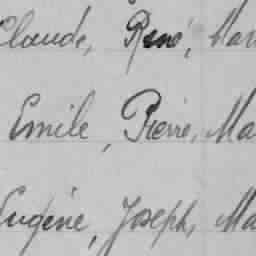 Claude, René, Mar
Emile, Pierre, Ma
Eugène, Joseph, Ma